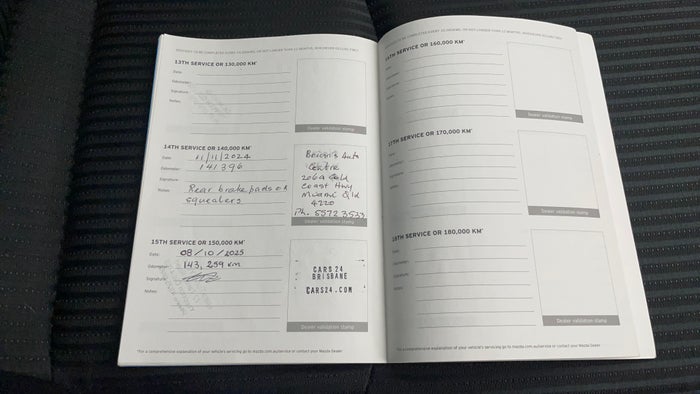 13TH SERVICE OR 130,000 KM*
Date:
Odometer:
Signature:
Notes:
Dealer validation stamp
14TH SERVICE OR 140,000 KM*
Date: 11/11/2024
Odometer: 141396
Signature:
Notes: Rear brake pads on
squealers
Auto
Centre
206A Gold
Coast Hwy
Miami Qld
4220
Ph. 5572 3523
Dealer validation stamp
15TH SERVICE OR 150,000 KM*
Date: 08/10/2025
Odometer: 143,259 km
Signature:
Notes:
CARS24
BRISBANE
CARS24.COM
Dealer validation stamp
*For a comprehensive explanation of your vehicle's servicing go to mazda.com.au/service or contact your Mazda Dealer
16TH SERVICE OR 160,000 KM*
Dealer validation stamp
17TH SERVICE OR 170,000 KM*
Dealer validation stamp
18TH SERVICE OR 180,000 KM*
Date:
Odometer:
Signature:
Notes:
Dealer validation stamp
*For a comprehensive explanation of your vehicle's servicing go to mazda.com.au/service or contact your Mazda Dealer